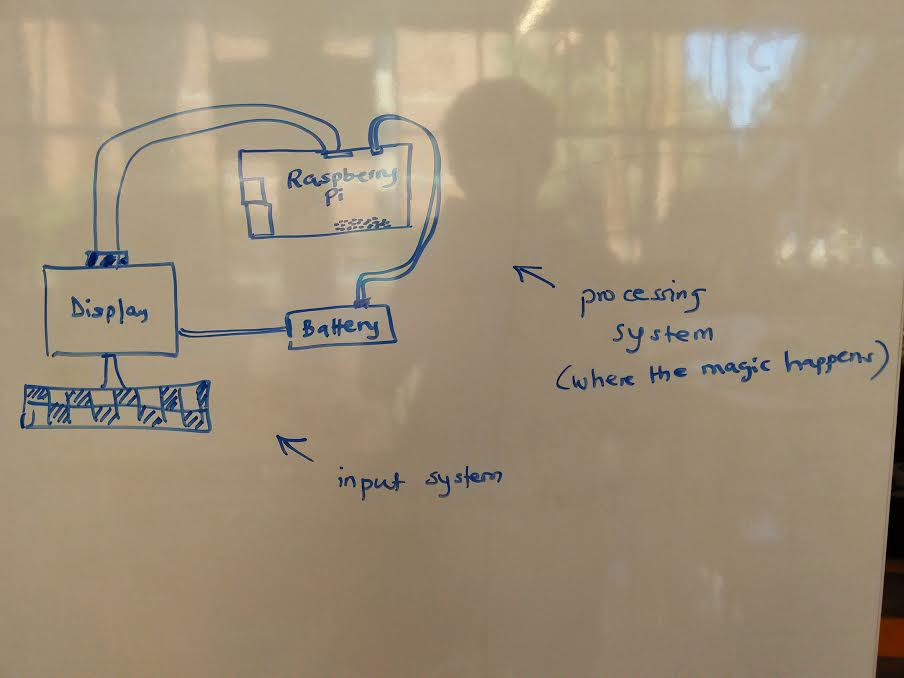 Raspberry
Pi
Display
Battery
processing
system
(where the magic happens)
input system